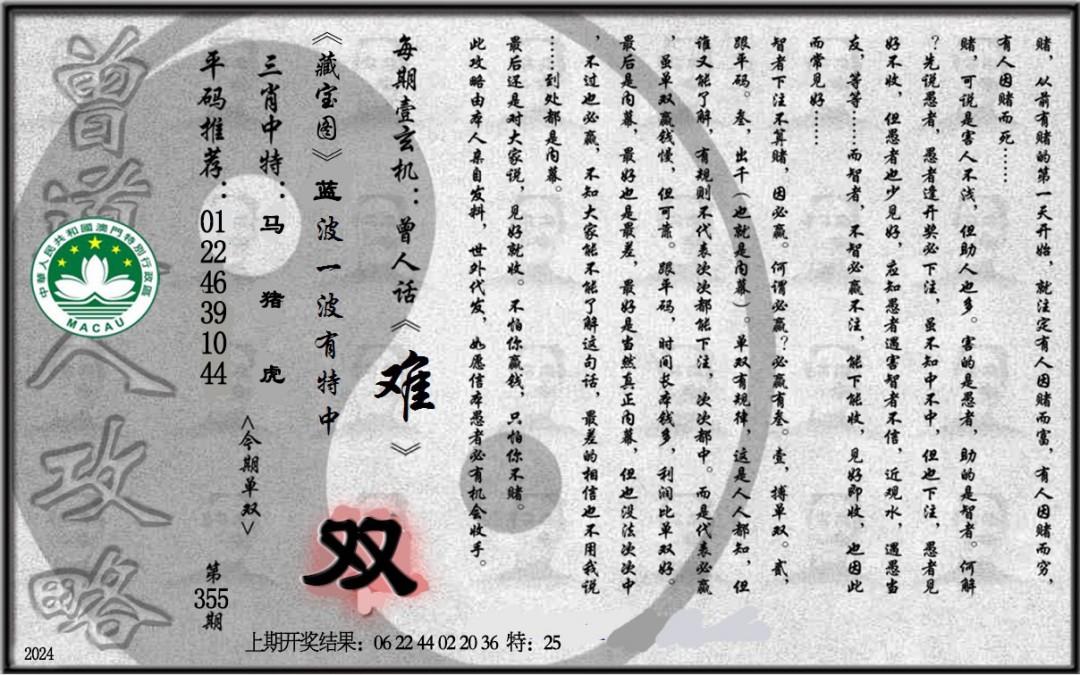 赌，从前有赌的第一天开始，就注定有人因赌而富，有人因赌而穷，
有人因赌而死……
赌，可说是害人不浅，但助人也多。害的是愚者，助的是智者。何解
？先说愚者，愚者逢开奖必下注，虽不知中不中，但也下注，愚者见
好不收，但愚者也少见好，应知愚者遇害智者不信，近观水，遇愚当
友，等等……而智者，不智必赢不注，能下能收，见好即收，也因此
而常见好……
智者下注不算赌，因必赢。何谓必赢？必赢有叁。壹，搏单双。贰，
跟平码。叁，出千（也就是内幕）。单双有规律，这是人人都知，但
谁又能了解，有规则不代表次次都能下注，次次都中。而是代表必赢
，虽单双赢钱慢，但可靠。跟平码，时间长本钱多，利润比单双好。
最后是内幕，最好也是最差，最好是当然真正内幕，但也没法次次中
，不过也必赢，不知大家能不能了解这句话，最差的相信也不用我说
……到处都是内幕。
最后还是对大家说，见好就收。不怕你赢钱，只怕你不赌。
此攻略由本人亲自发料，世外代发，如愿信本愚者必有机会收手。
每期壹玄机：曾人话《难》
《藏宝图》蓝波一波有特中
双
三肖中特：马 猪 虎
<今期单双>
平码推荐：01 22 46 39 10 44
第355期
曾道人攻略
中華人民共和國澳門特別行政區
MACAU
上期开奖结果：06 22 44 02 20 36 特：25
2024